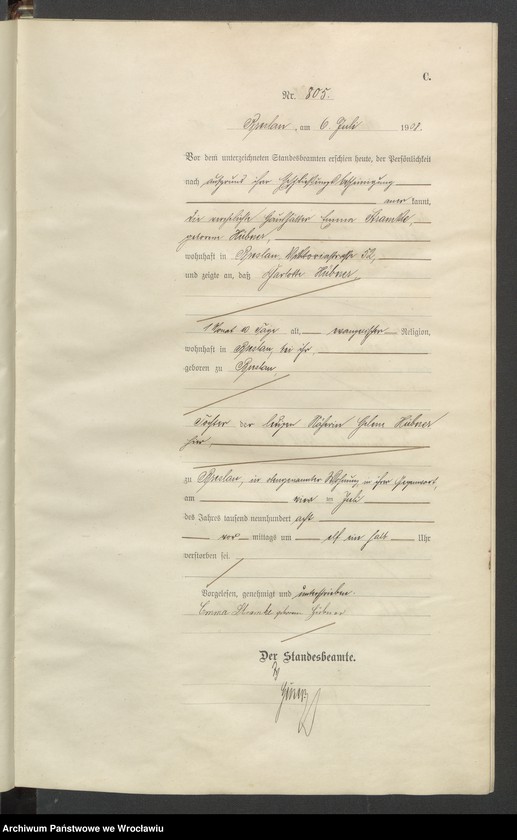 C.
Nr. 805.
Breslau, am 6. Juli 1908.
Vor dem unterzeichneten Standesbeamten erschien heute, der Persönlichkeit
nach aufgrund ihrer Eheschließungsbescheinigung
aner kannt,
die verehelichte Haushälter Emma Strantke,
geborene Hübner,
wohnhaft in Breslau, Viktoriastraße 52,
und zeigte an, daß Charlotte Hübner,
1 Monat 10 Tage alt, evangelischer Religion,
wohnhaft in Breslau, bei ihr,
geboren zu Breslau,
Tochter der ledigen Näherin Helene Hübner
hier,
zu Breslau, in obengenannter Wohnung, in ihrer Gegenwart,
am vier ten Juli
des Jahres tausend neunhundert acht
vor mittags um elf ein halb Uhr
verstorben sei.
Vorgelesen, genehmigt und unterschrieben.
Emma geborene Hübner
Der Standesbeamte.
Archiwum Państwowe we Wrocławiu